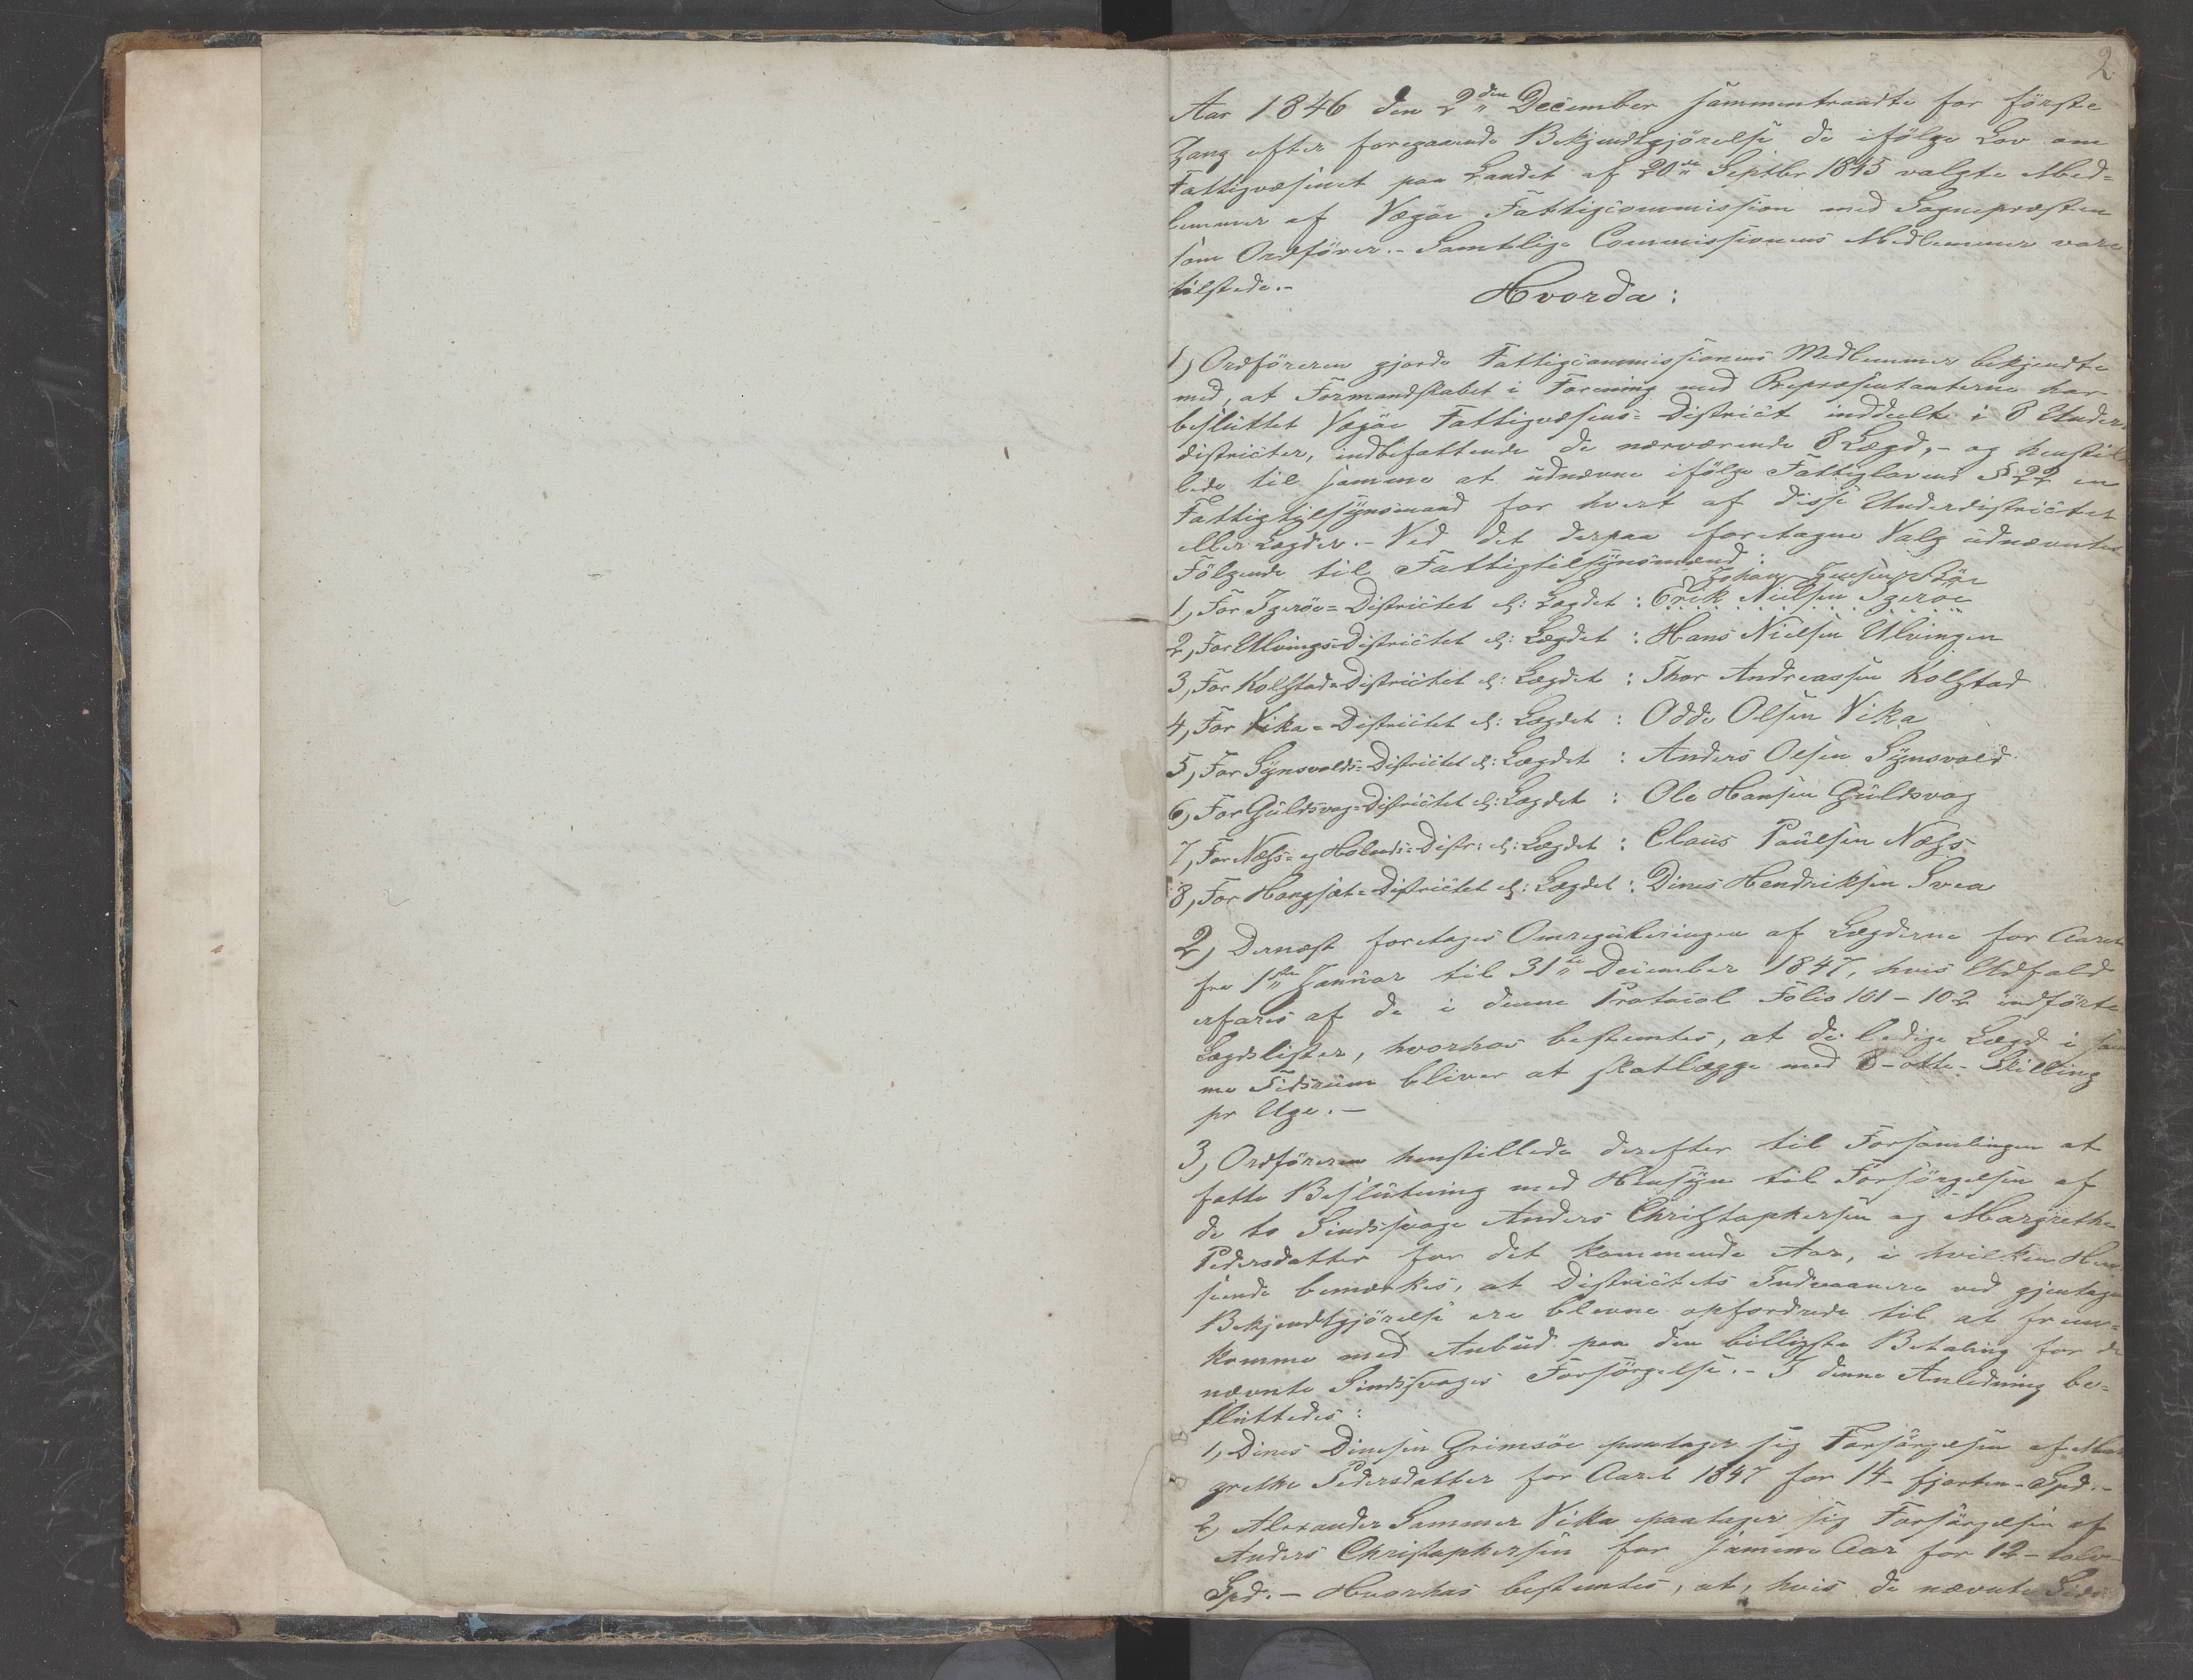 2
Aar 1846 den 2den December sammentraadte for förste
Gang efter foregaaende Bekjendtgjörelse de ifölge Lov om
Fattigvæsenet paa Landet af 20de Septbr 1845 valgte Med=
lemmer af Vegöe Fattigcommission med Sognepræsten
som Ordförer.- Samtlige Commissionens Medlemmer vare
tilstede.-
Hvorda:
1) Ordföreren gjorde Fattigcommissionens Medlemmer bekjendte
med, at Formandskabet i Forening med Repræsentanterne har
besluttet Vegöe Fattigvæsens=District inddeelt i 8 Under=
districter, indbefattende de nærværende 8 Lægd,- og henstil
lede til samme at udnævne ifölge Fattiglovens § 22 en
Fattigtilsynsmand for hvert af disse Underdistricter
eller Lægder.- Ved det derpaa foretagne Valg udnævntes
Fölgende til Fattigtilsynsmænd:
Johan Jensen
1, For Igeröe=Districtet el: Lægdet: Erik Nielsen Igeröe
2, For Ulvings=Districtet el: Lægdet: Hans Nielsen Ulvingen
3, For Kolstad=Districtet el: Lægdet: Thor Andreassen Kolstad
4, For Vika=Districtet el: Lægdet: Odde Olsen Vika
5, For Synsvolds=Districtet el: Lægdet: Anders Olsen Synsvold
6, For Guldsvog=Districtet el: Lægdet: Ole Hansen Guldsvog
7, For Næss= og Holands=Distr: el: Lægdet: Claus Paulsen Næss
8, For Hongsæt=Districtet el: Lægdet: Dines Hendriksen Svea
2) Dernæst foretages Omreguleringen af Lægderne for Aaret
fra 1ste Januar til 31te December 1847, hvis Udfald
erfares af de i denne Protocol Folio 101-102 indförte
Lægdslister, hvorhos bestemtes, at de ledige Lægd i sam
me Tidsrum bliver at skatlægge med 8-otte-Skilling
pr Uge.-
3, Ordföreren henstillede derefter til Forsamlingen at
fatte Beslutning med Hensyn til Forsörgelsen af
de to Sindssvage Anders Christophersen og Margrethe
Pedersdatter for det kommende Aar, i hvilken Hen
seende bemærkes, at Districtets Indvaanere ved gjentagen
Bekjendtgjörelse ere blevne opfordrede til at frem=
komme med Anbud paa den billigste Betaling for de
nævnte Sindssvages Forsörgelse.- I denne Anledning be=
sluttedes:
1, Dines Dinesen Grimsöe paatager sig Forsörgelsen af Mar
grethe Pedersdatter for Aaret 1847 for 14-fjorten-Spd.-
2, Alexander Sammer Vika paatager sig Forsörgelsen af
Anders Christophersen for samme Aar for 12-tolv-
Spd.- Hvorhos bestemtes, at, hvis de nævnte